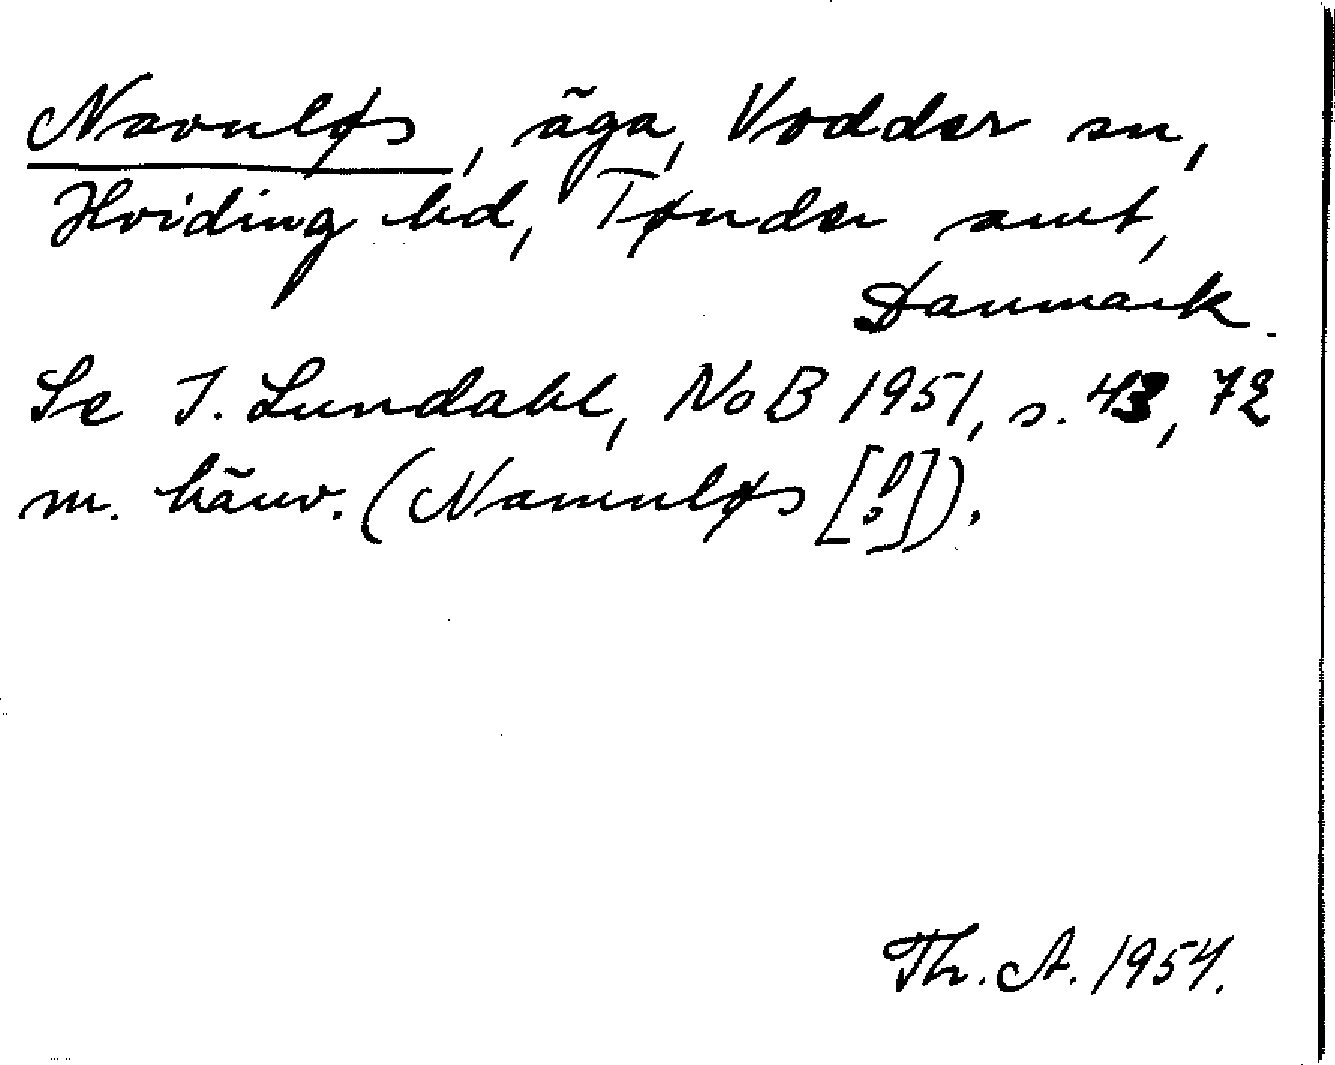 Navnløs, äga, Vodder sn,
Hviding hd, Tønder amt,
Danmark.
Se I. Lundahl, NoB 1951, s. 43, 72
m. hänv. (Namnløs [!]).
Th. A. 1954.